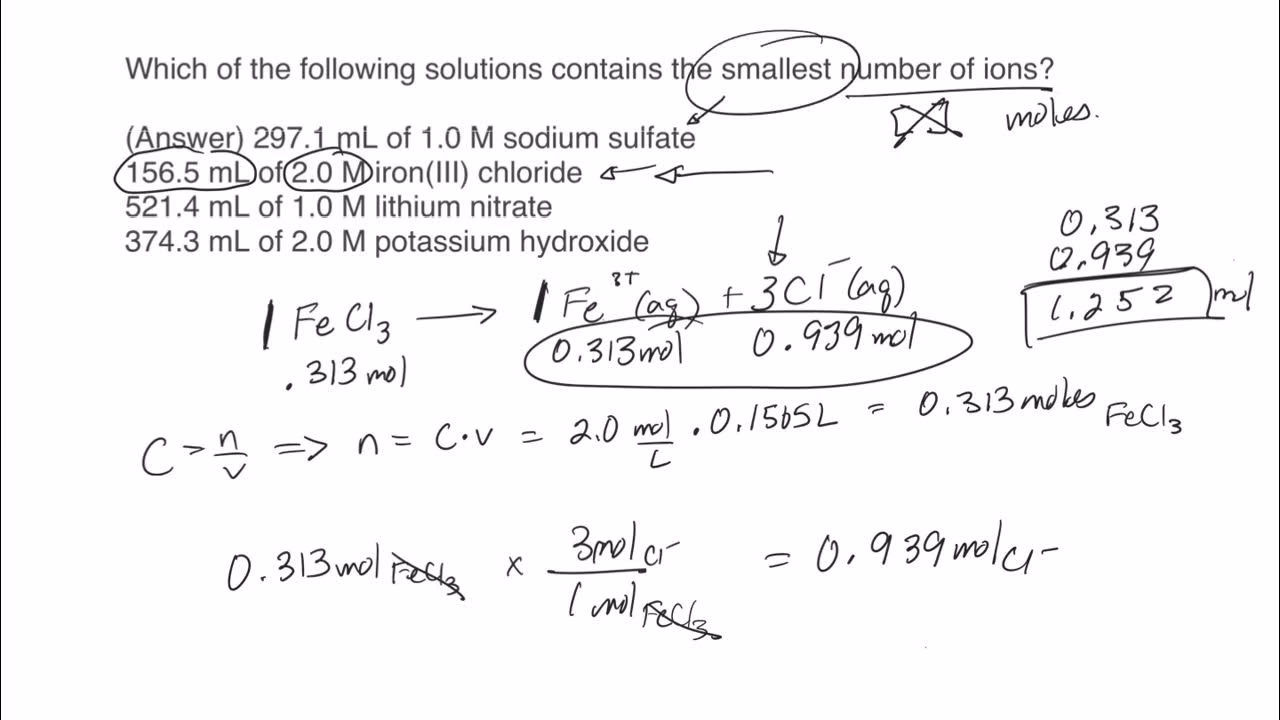 Which of the following solutions contains the smallest number of ions?
moles.
(Answer) 297.1 mL of 1.0 M sodium sulfate
156.5 mL of 2.0 M iron(III) chloride
521.4 mL of 1.0 M lithium nitrate
374.3 mL of 2.0 M potassium hydroxide
0.313
0.939
1.252 mol
1 FeCl₃ → 1 Fe³⁺(aq) + 3Cl⁻(aq)
.313 mol 0.313 mol 0.939 mol
C = n/v ⇒ n = C·v = 2.0 mol/L · 0.1565L = 0.313 moles FeCl₃
0.313 mol FeCl₃ × 3 mol Cl⁻ / 1 mol FeCl₃ = 0.939 mol Cl⁻